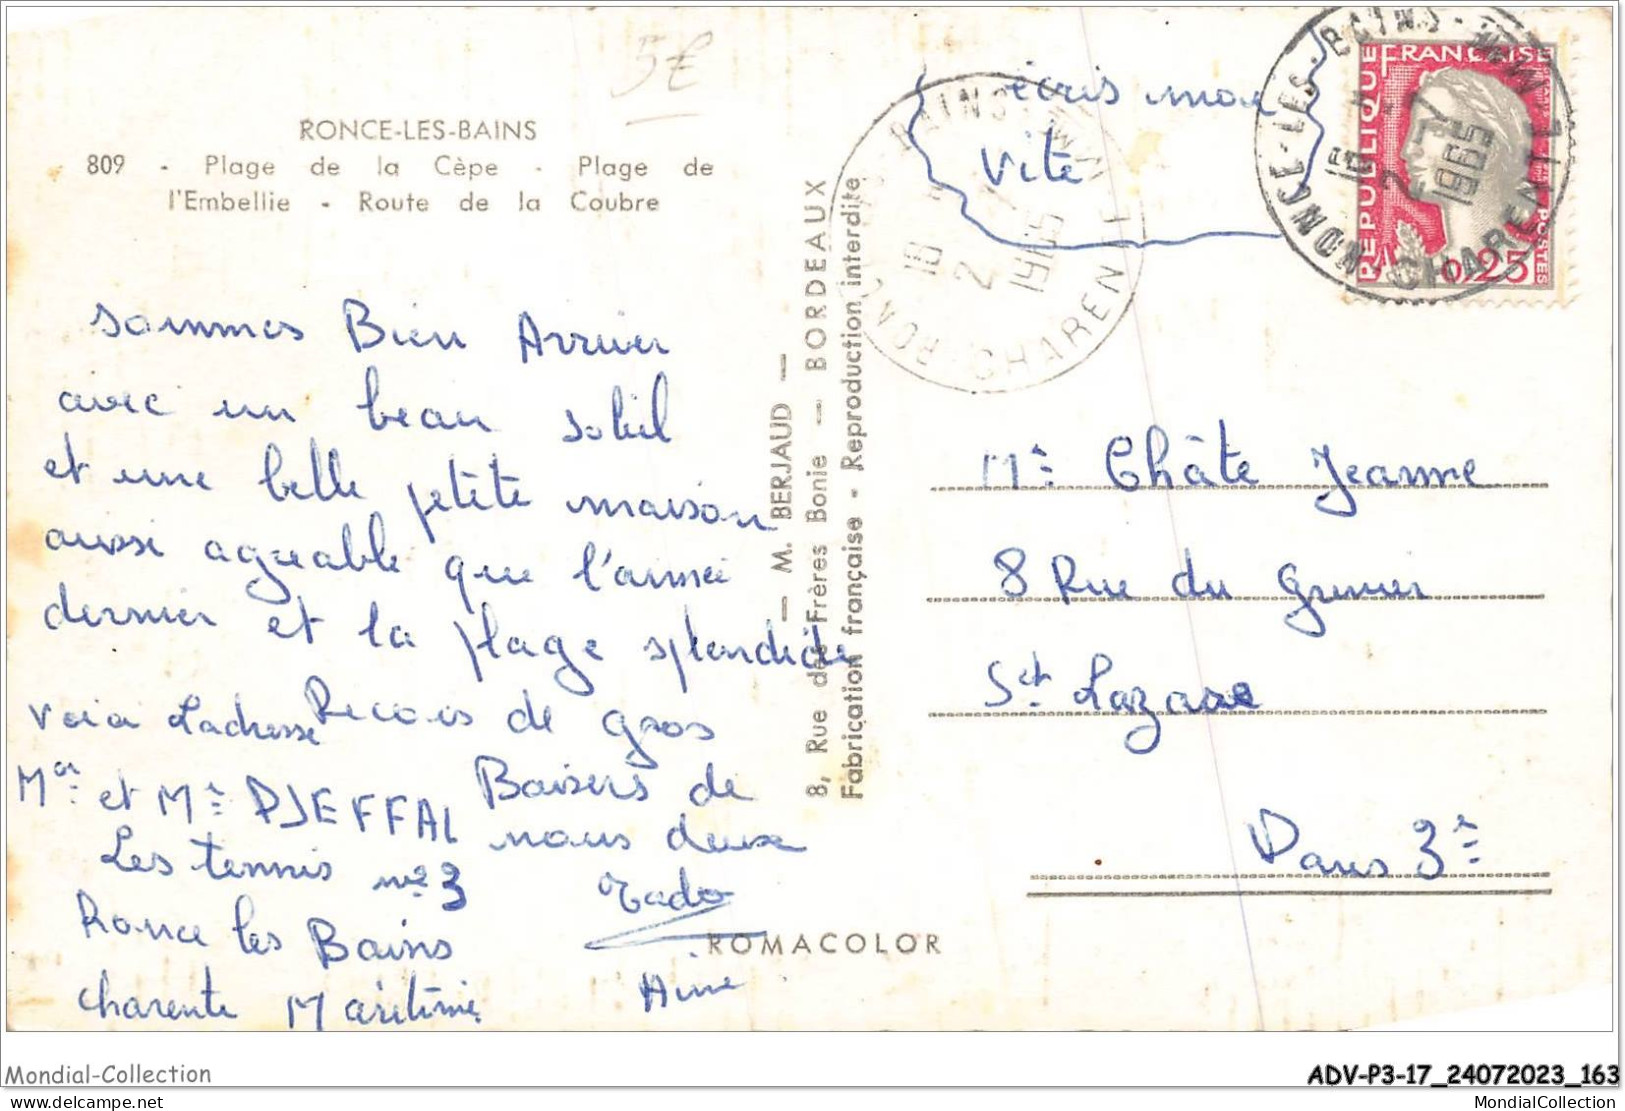 5€
RONCE-LES-BAINS
809 - Plage de la Cèpe - Plage de
l'Embellie - Route de la Coubre
sommes Bien Arriver
avec un beau soleil
et une belle petite maison
aussi agreable que l'année
dernier et la plage splendide
Recois de gros
Baisers de
nous deux
Aime
Voici Ladresse
Mr et Me DJEFFAL
Les tennis no 3
Ronce les Bains
charente Maritime
— M. BERJAUD —
8, Rue des Frères Bonie — BORDEAUX
Fabrication française - Reproduction interdite
ROMACOLOR
écris moi
vite
RONCE-LES-BAINS
18 H
2
1965
CHARENTE
RONCE-LES-BAINS
18 H
2 -7
1965
CHARENTE
REPUBLIQUE FRANÇAISE
POSTES
0,25
Me Châte Jeanne
8 Rue du Grenier
St Lazare
Paris 3e
Mondial-Collection
delcampe.net
ADV-P3-17_24072023_163
MondialCollection